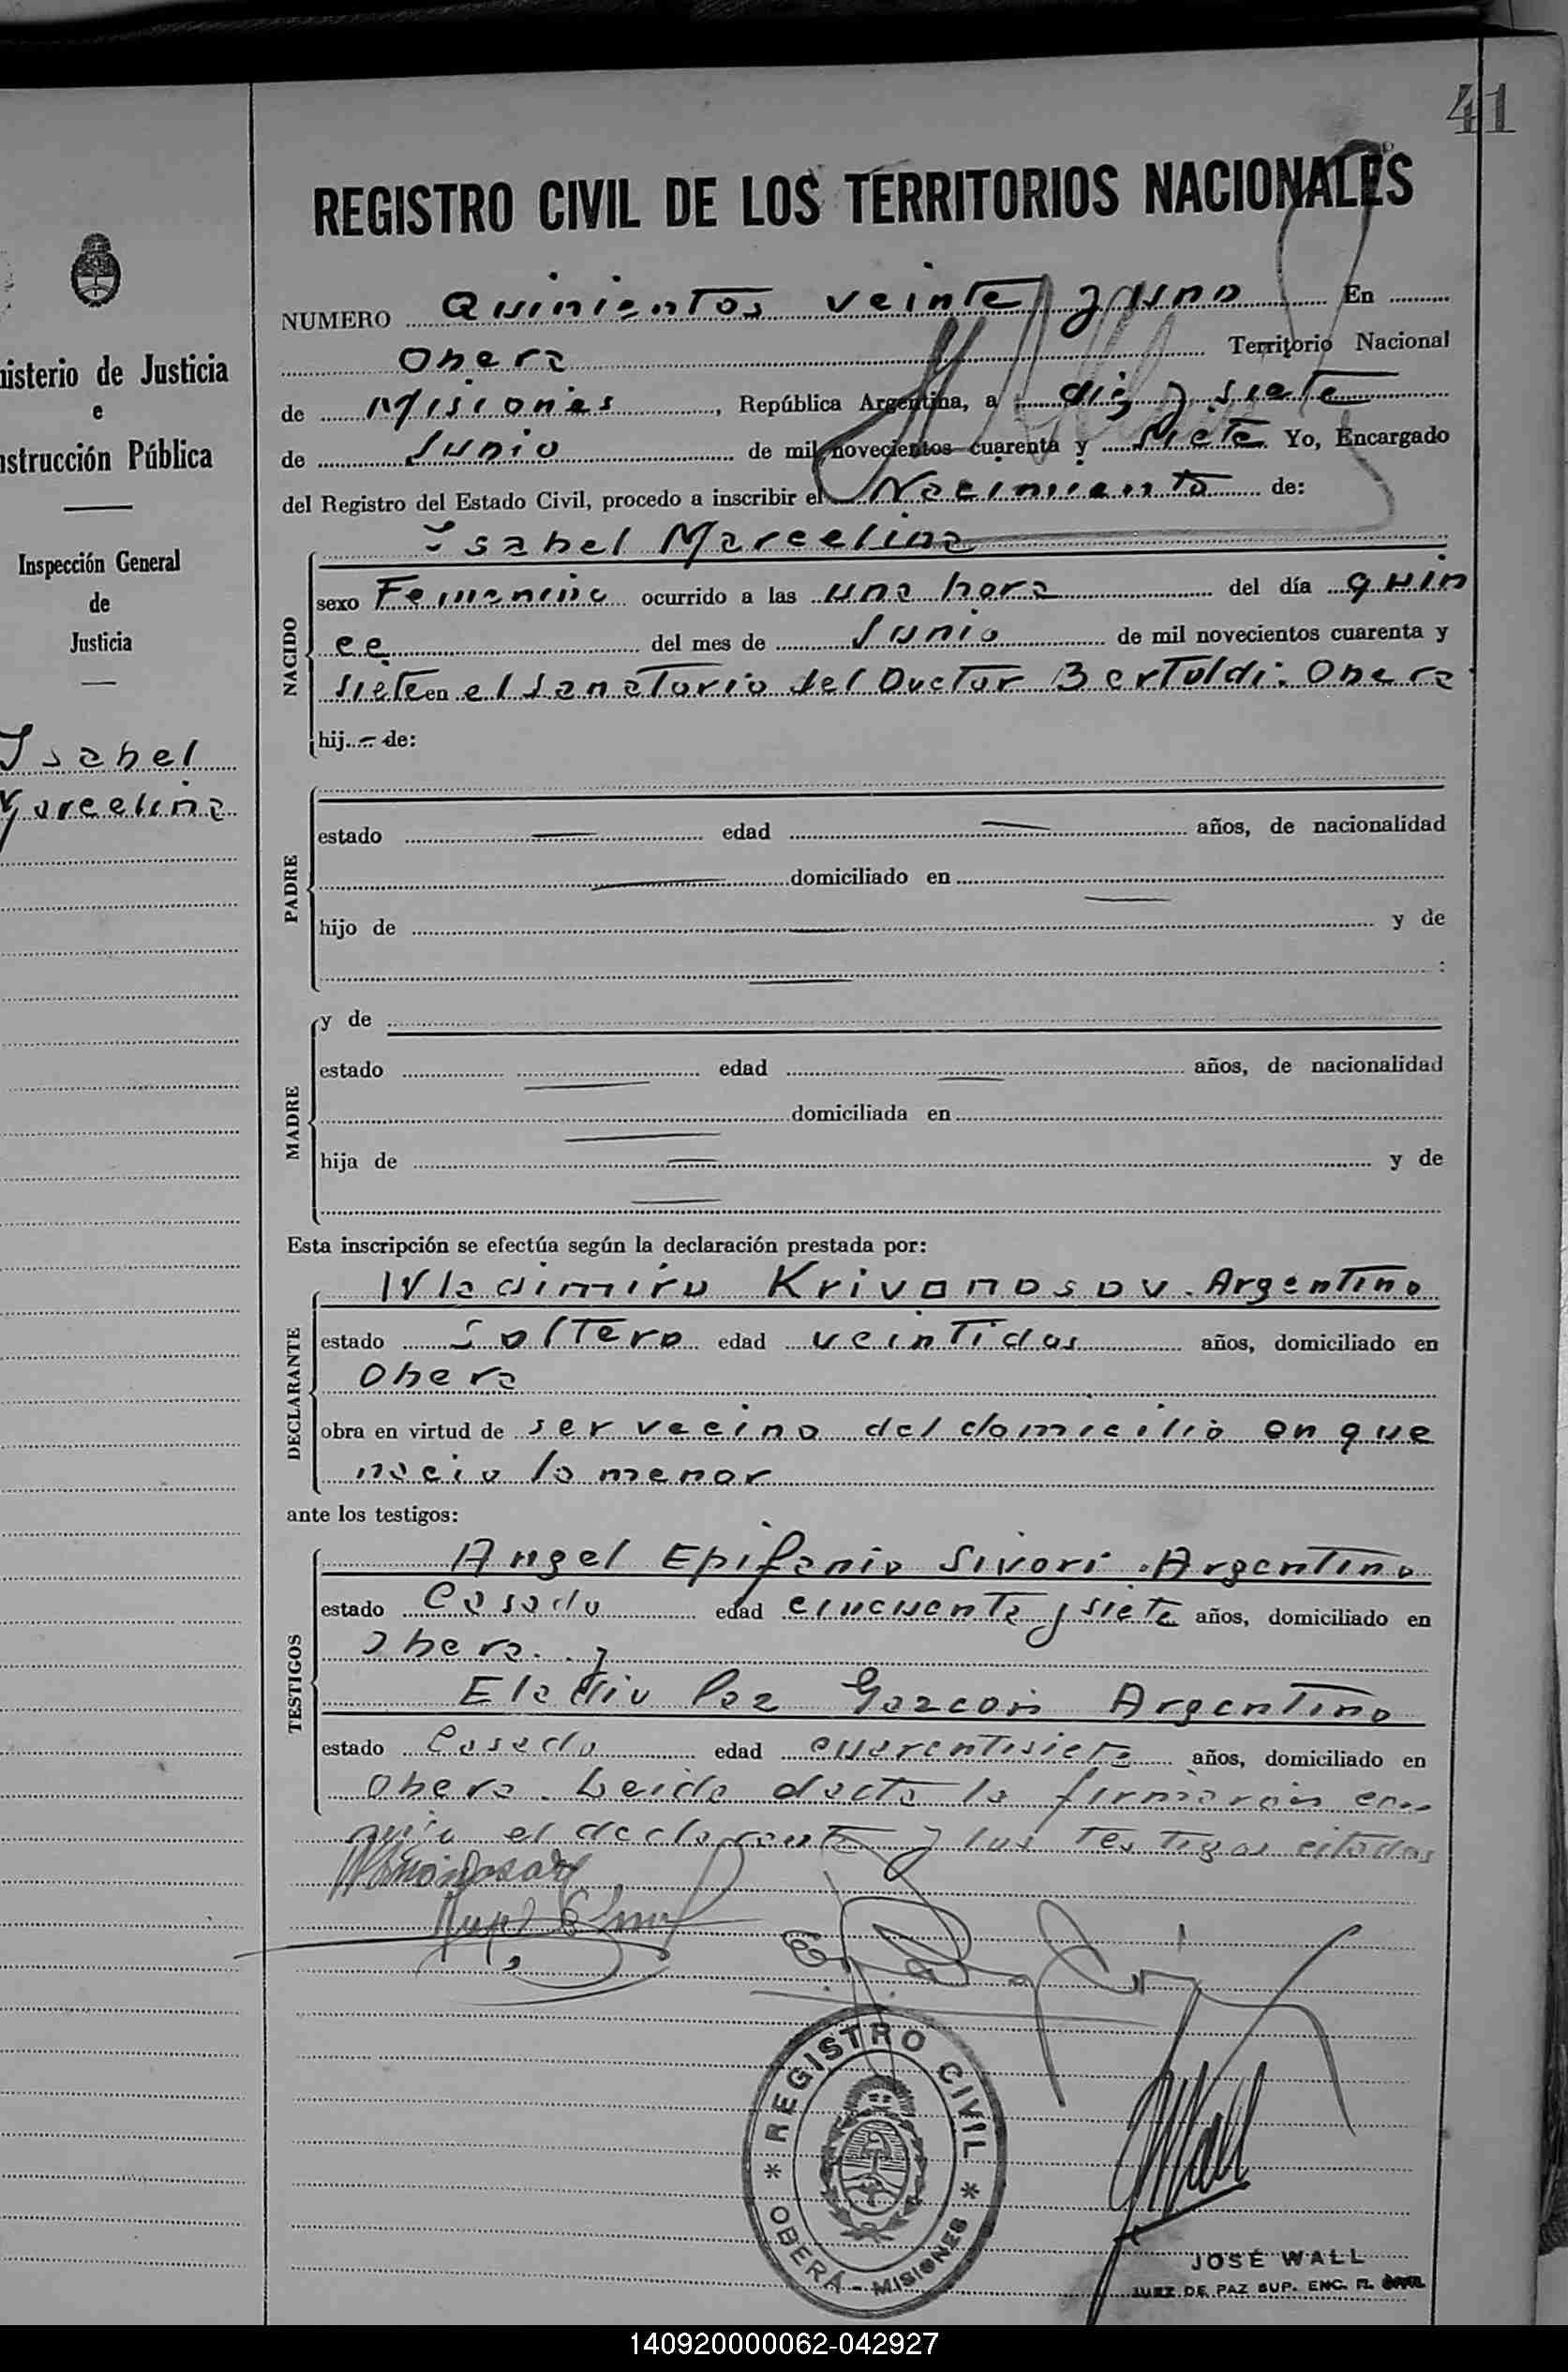 41
REGISTRO CIVIL DE LOS TERRITORIOS NACIONALES
NUMERO Quinientos veinte y uno En
Obera Territorio Nacional
de Misiones, República Argentina, a diez y siete
de Junio de mil novecientos cuarenta y siete Yo, Encargado
del Registro del Estado Civil, procedo a inscribir el Nacimiento de:
NACIDO
Ysabel Marcelina
sexo Femenino ocurrido a las una hora del día quin
ce del mes de Junio de mil novecientos cuarenta y
siete en el Sanatorio del Doctor Bertoldi. Obera
hij de:
PADRE
estado edad años, de nacionalidad
domiciliado en
hijo de y de
:
MADRE
y de
estado edad años, de nacionalidad
domiciliada en
hija de y de
Esta inscripción se efectúa según la declaración prestada por:
DECLARANTE
Wladimiro Krivonosov. Argentino
estado Soltero edad veintidos años, domiciliado en
Obera
obra en virtud de ser vecino del domicilio en que
nacio la menor
ante los testigos:
TESTIGOS
Angel Epifanio Sivori. Argentino
estado Casado edad cincuenta y siete años, domiciliado en
Obera. y
Eladio Paz Garzon Argentino
estado Casado edad cuarentisiete años, domiciliado en
Obera. Leida dacta la firmaron con
migo el declarante y los testigos citados
REGISTRO CIVIL
OBERÁ - MISIONES
JOSÉ WALL
JUEZ DE PAZ SUP. ENC. R. CIVIL
nisterio de Justicia
e
nstrucción Pública
Inspección General
de
Justicia
Ysabel
Marcelina
140920000062-042927